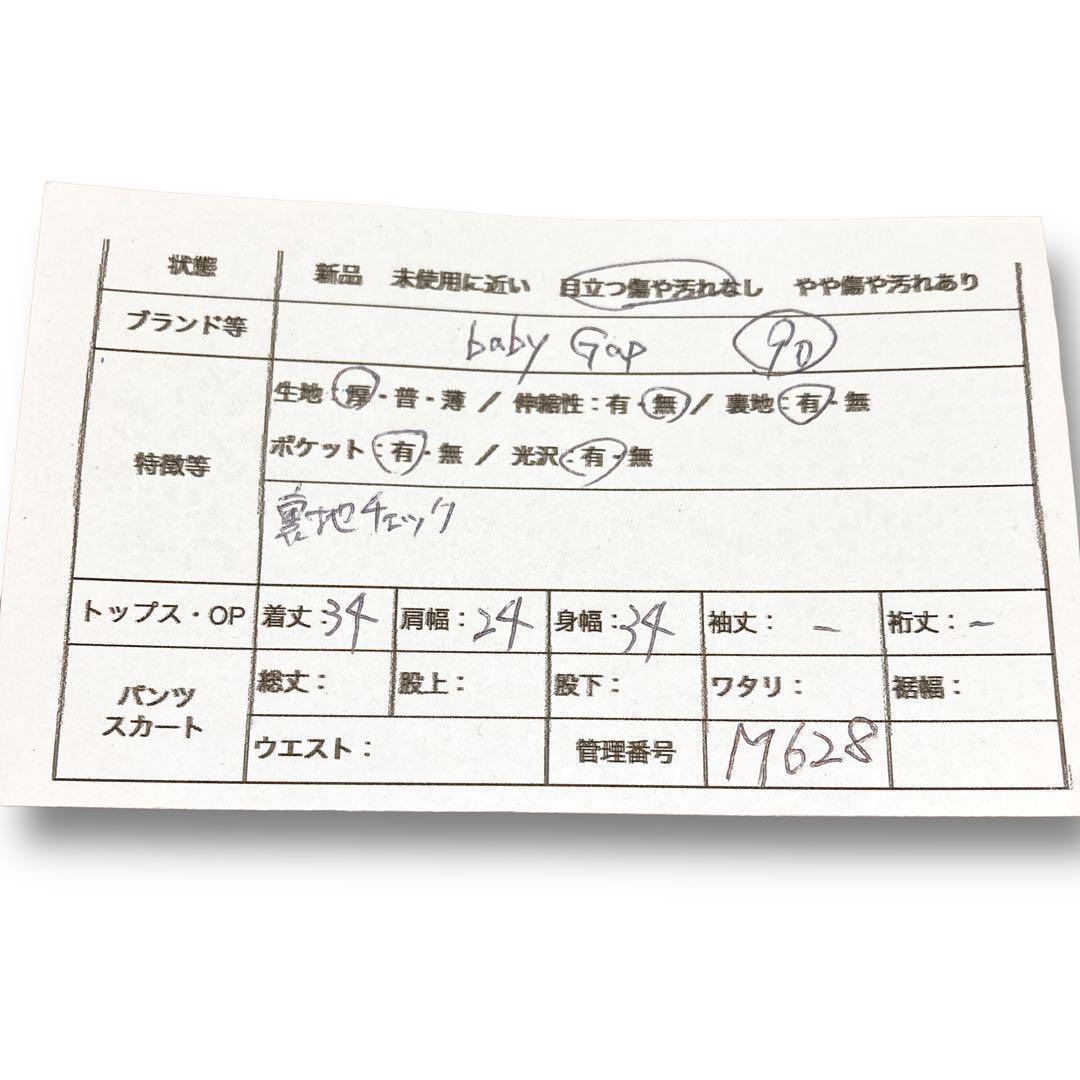 状態 新品 未使用に近い 目立つ傷や汚れなし やや傷や汚れあり
ブランド等 baby Gap 90
生地：厚・普・薄 / 伸縮性：有・無 / 裏地：有・無
特徴等 ポケット：有・無 / 光沢：有・無
裏地チェック
トップス・OP 着丈：34 肩幅：24 身幅：34 袖丈：－ 裄丈：－
パンツ スカート 総丈： 股上： 股下： ワタリ： 裾幅：
ウエスト： 管理番号 M628